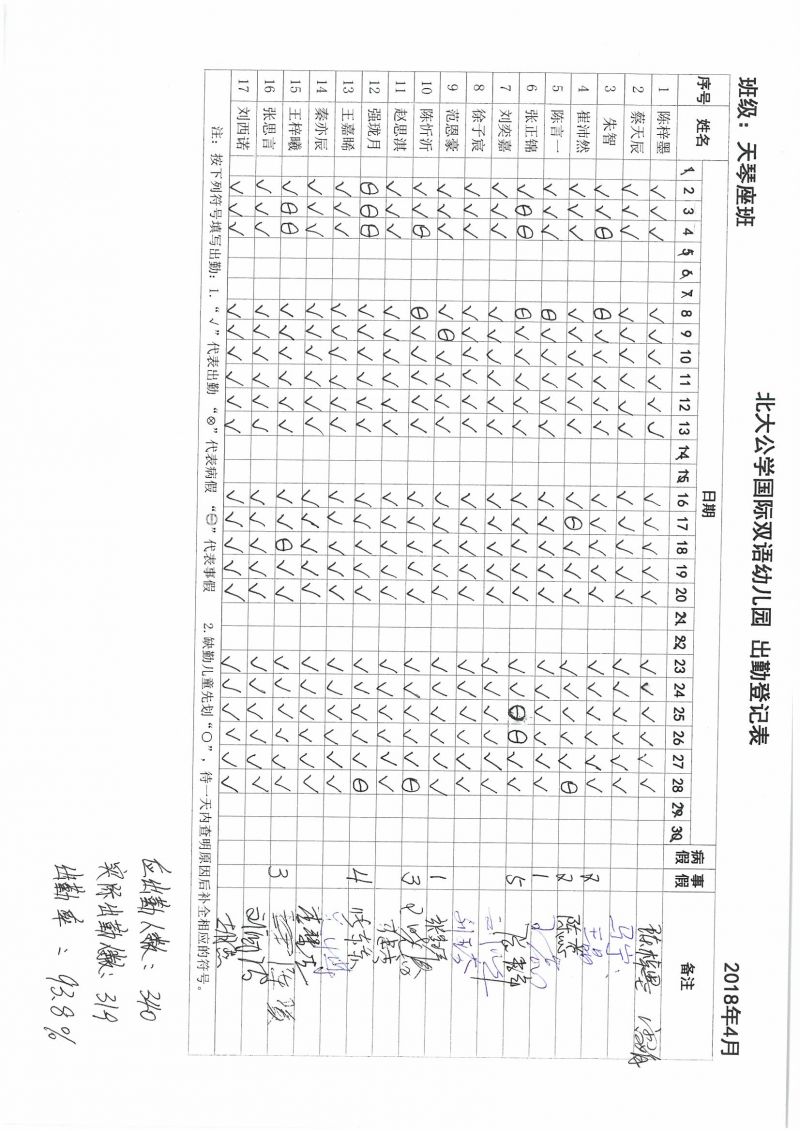 北大公学国际双语幼儿园 出勤登记表
班级：天琴座班 2018年4月
序号 姓名 日期 病假 事假 备注
1 2 3 4 5 6 7 8 9 10 11 12 13 14 15 16 17 18 19 20 21 22 23 24 25 26 27 28 29 30
1 陈梓墨 √ √ √ √ √ √ √ √ √ √ √ √ √ √ √ √ √ √ √ √
2 蔡天辰 √ √ √ √ √ √ √ √ √ √ √ √ √ √ √ √ √ √ √ √
3 朱智 √ √ ⊖ ⊖ √ √ √ √ √ √ √ √ √ √ √ √ √ √ √ √ 2
4 崔沛然 √ √ √ √ √ √ √ √ √ √ ⊖ √ √ √ √ √ √ √ √ ⊖ 2
5 陈言一 √ √ √ ⊖ √ √ √ √ √ √ √ √ √ √ √ √ √ √ √ √ 1
6 张正锦 √ ⊖ ⊖ ⊖ √ √ √ √ √ √ √ √ √ √ √ √ ⊖ ⊖ √ √ 5
7 刘奕嘉 √ √ √ √ √ √ √ √ √ √ √ √ √ √ √ √ √ √ √ √
8 徐子宸 √ √ √ √ √ √ √ √ √ √ √ √ √ √ √ √ √ √ √ √
9 范恩豪 √ √ √ √ ⊖ √ √ √ √ √ √ √ √ √ √ √ √ √ √ √ 1
10 陈忻沂 √ √ ⊖ ⊖ √ √ √ √ √ √ √ √ √ √ √ √ √ √ √ ⊖ 3
11 赵思淇 √ √ √ √ √ √ √ √ √ √ √ √ √ √ √ √ √ √ √ √
12 强珑月 ⊖ ⊖ ⊖ √ √ √ √ √ √ √ √ √ √ √ √ √ √ √ √ ⊖ 4
13 王嘉晞 √ √ √ √ √ √ √ √ √ √ √ √ √ √ √ √ √ √ √ √
14 秦亦辰 √ √ √ √ √ √ √ √ √ √ √ √ √ √ √ √ √ √ √ √
15 王梓曦 √ ⊖ ⊖ √ √ √ √ √ √ √ √ ⊖ √ √ √ √ √ √ √ √ 3
16 张思言 √ √ √ √ √ √ √ √ √ √ √ √ √ √ √ √ √ √ √ √
17 刘西诺 √ √ √ √ √ √ √ √ √ √ √ √ √ √ √ √ √ √ √ √
注：按下列符号填写出勤：1.“√”代表出勤 “⊗”代表病假 “⊖”代表事假 2.缺勤儿童先划“○”，待一天内查明原因后补全相应的符号。
应出勤人数：340
实际出勤人数：319
出勤率：93.8%